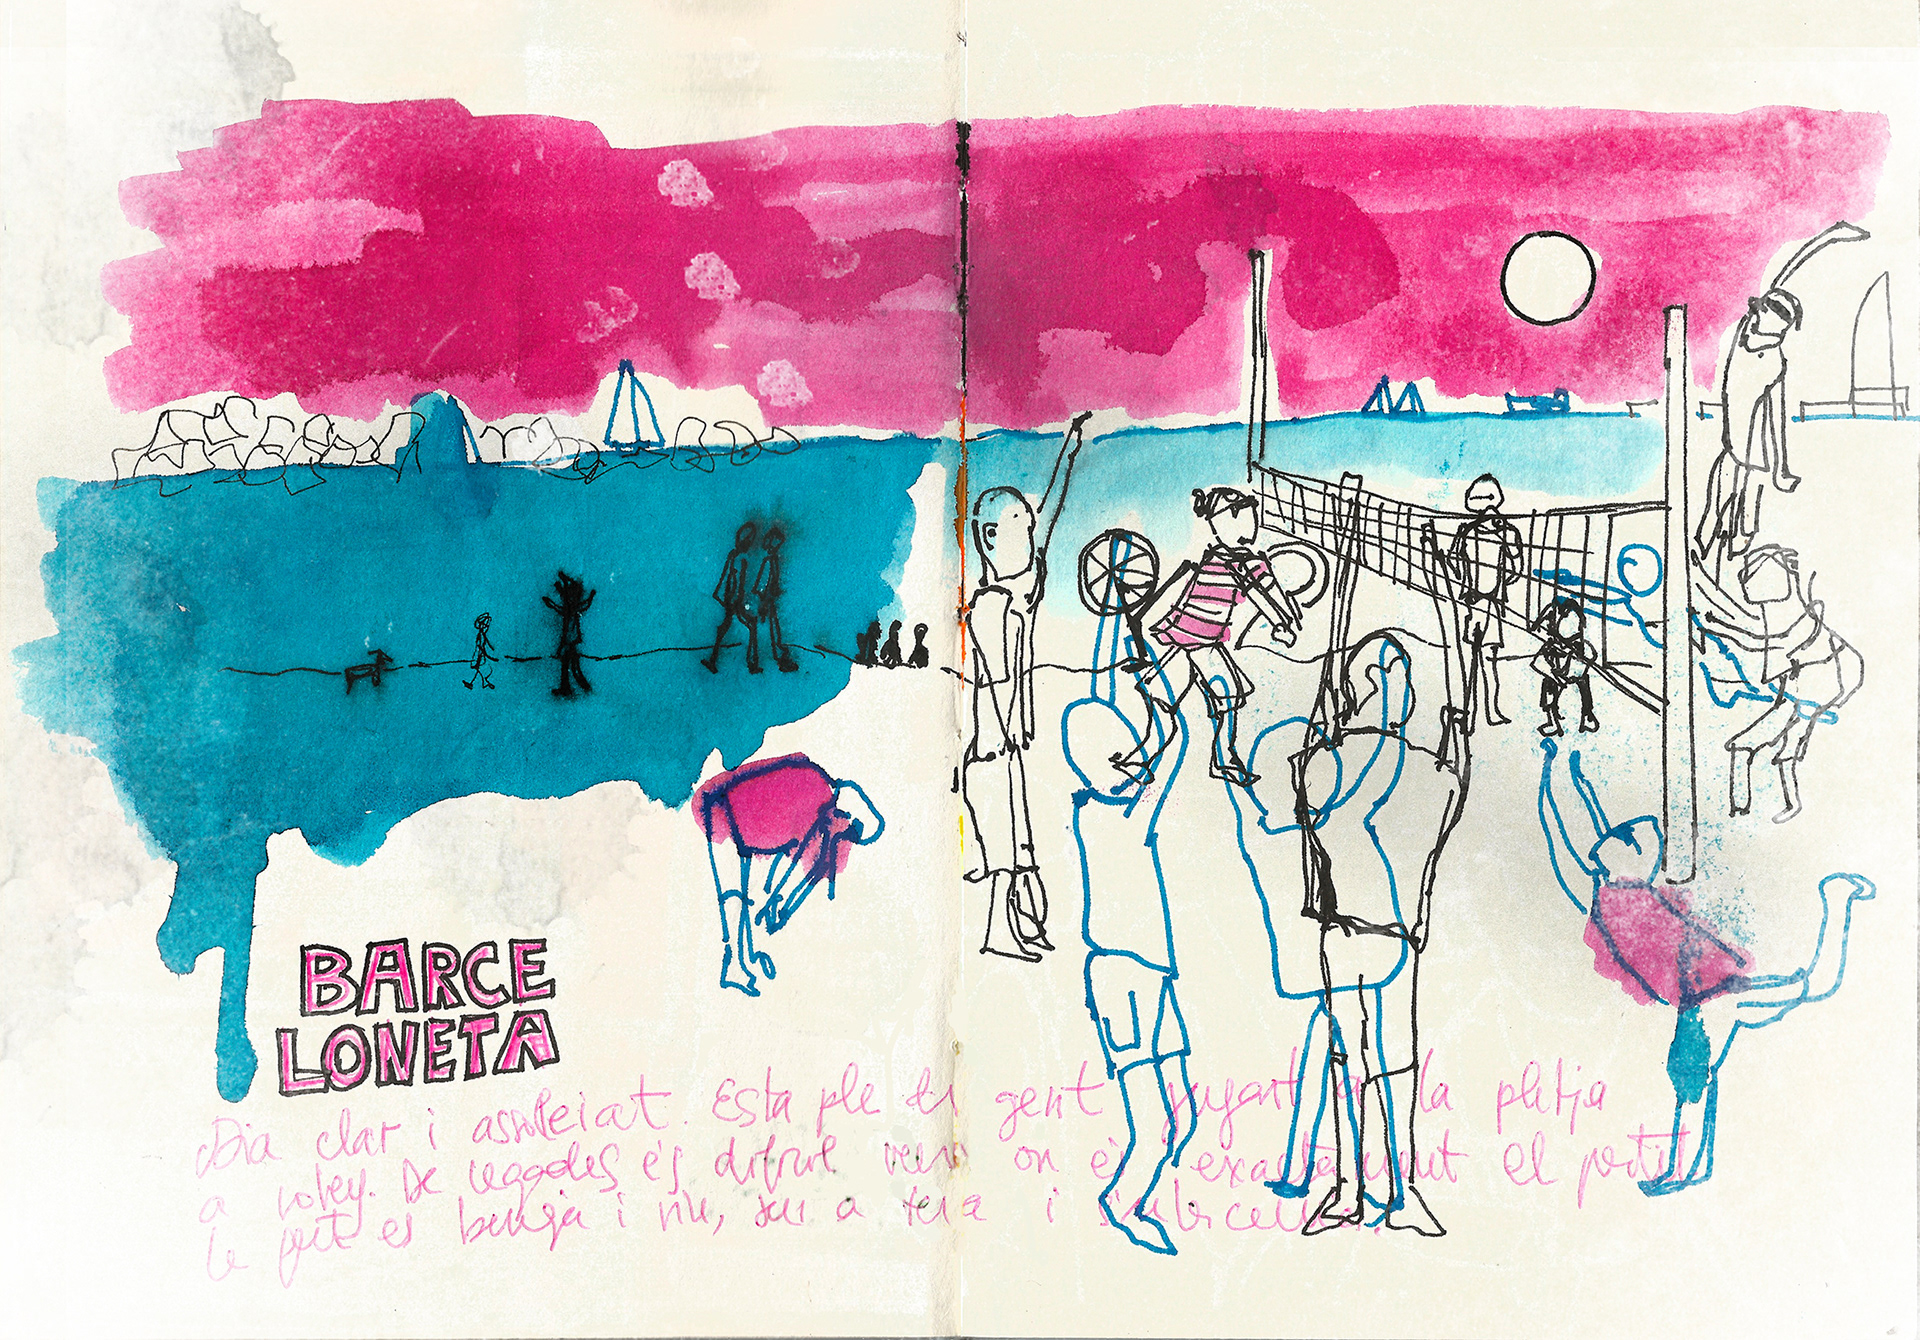 BARCE
LONETA
Dia clar i assoleiat. Esta ple de gent jugant a la platja
a voley. De vegades és difícil veure on és exactament el partit
la gent es barreja i riu, jeu a terra i